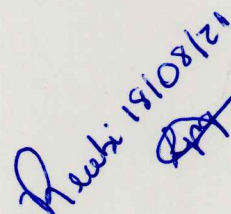 Recibi 18/08/21